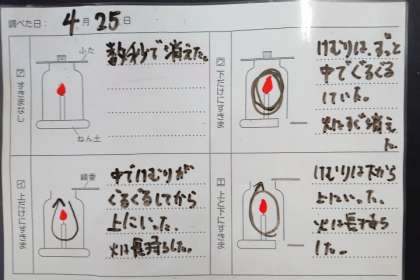 調べた日: 4月25日
ア すきまなし
ふた
ねん土
数秒で消えた。
下だけにすきま
けむりは、ずっと
中でぐるぐる
していた。
火はすぐ消え
た。
上だけにすきま
線香
中でけむりが
ぐるぐるしてから
上にいった。
火は長持ちした。
上下にすきま
けむりは下から
上にいった。
火は長持ち
した。